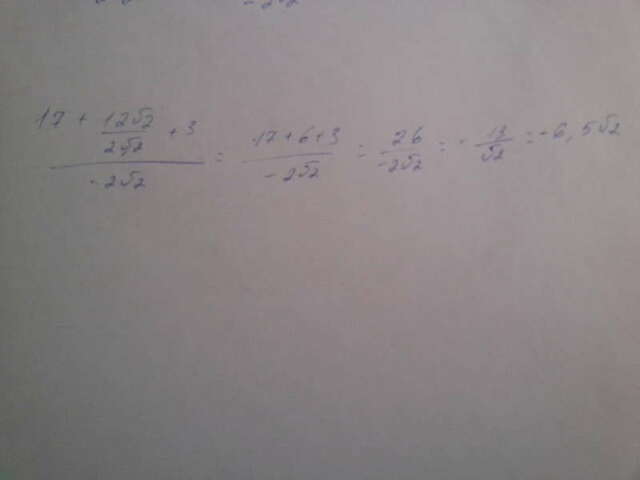 (17 + 12√2/2√2 + 3)/(-2√2) = (17+6+3)/(-2√2) = 26/(-2√2) = - 13/√2 = -6,5√2